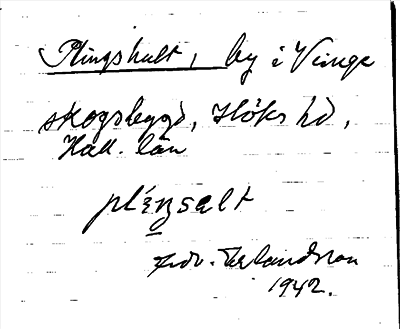 Plingshult, by i Vinge
skogsbygd, Höks hd,
Hall. län
plɛ́ŋsalt
Erlandsson
1942.